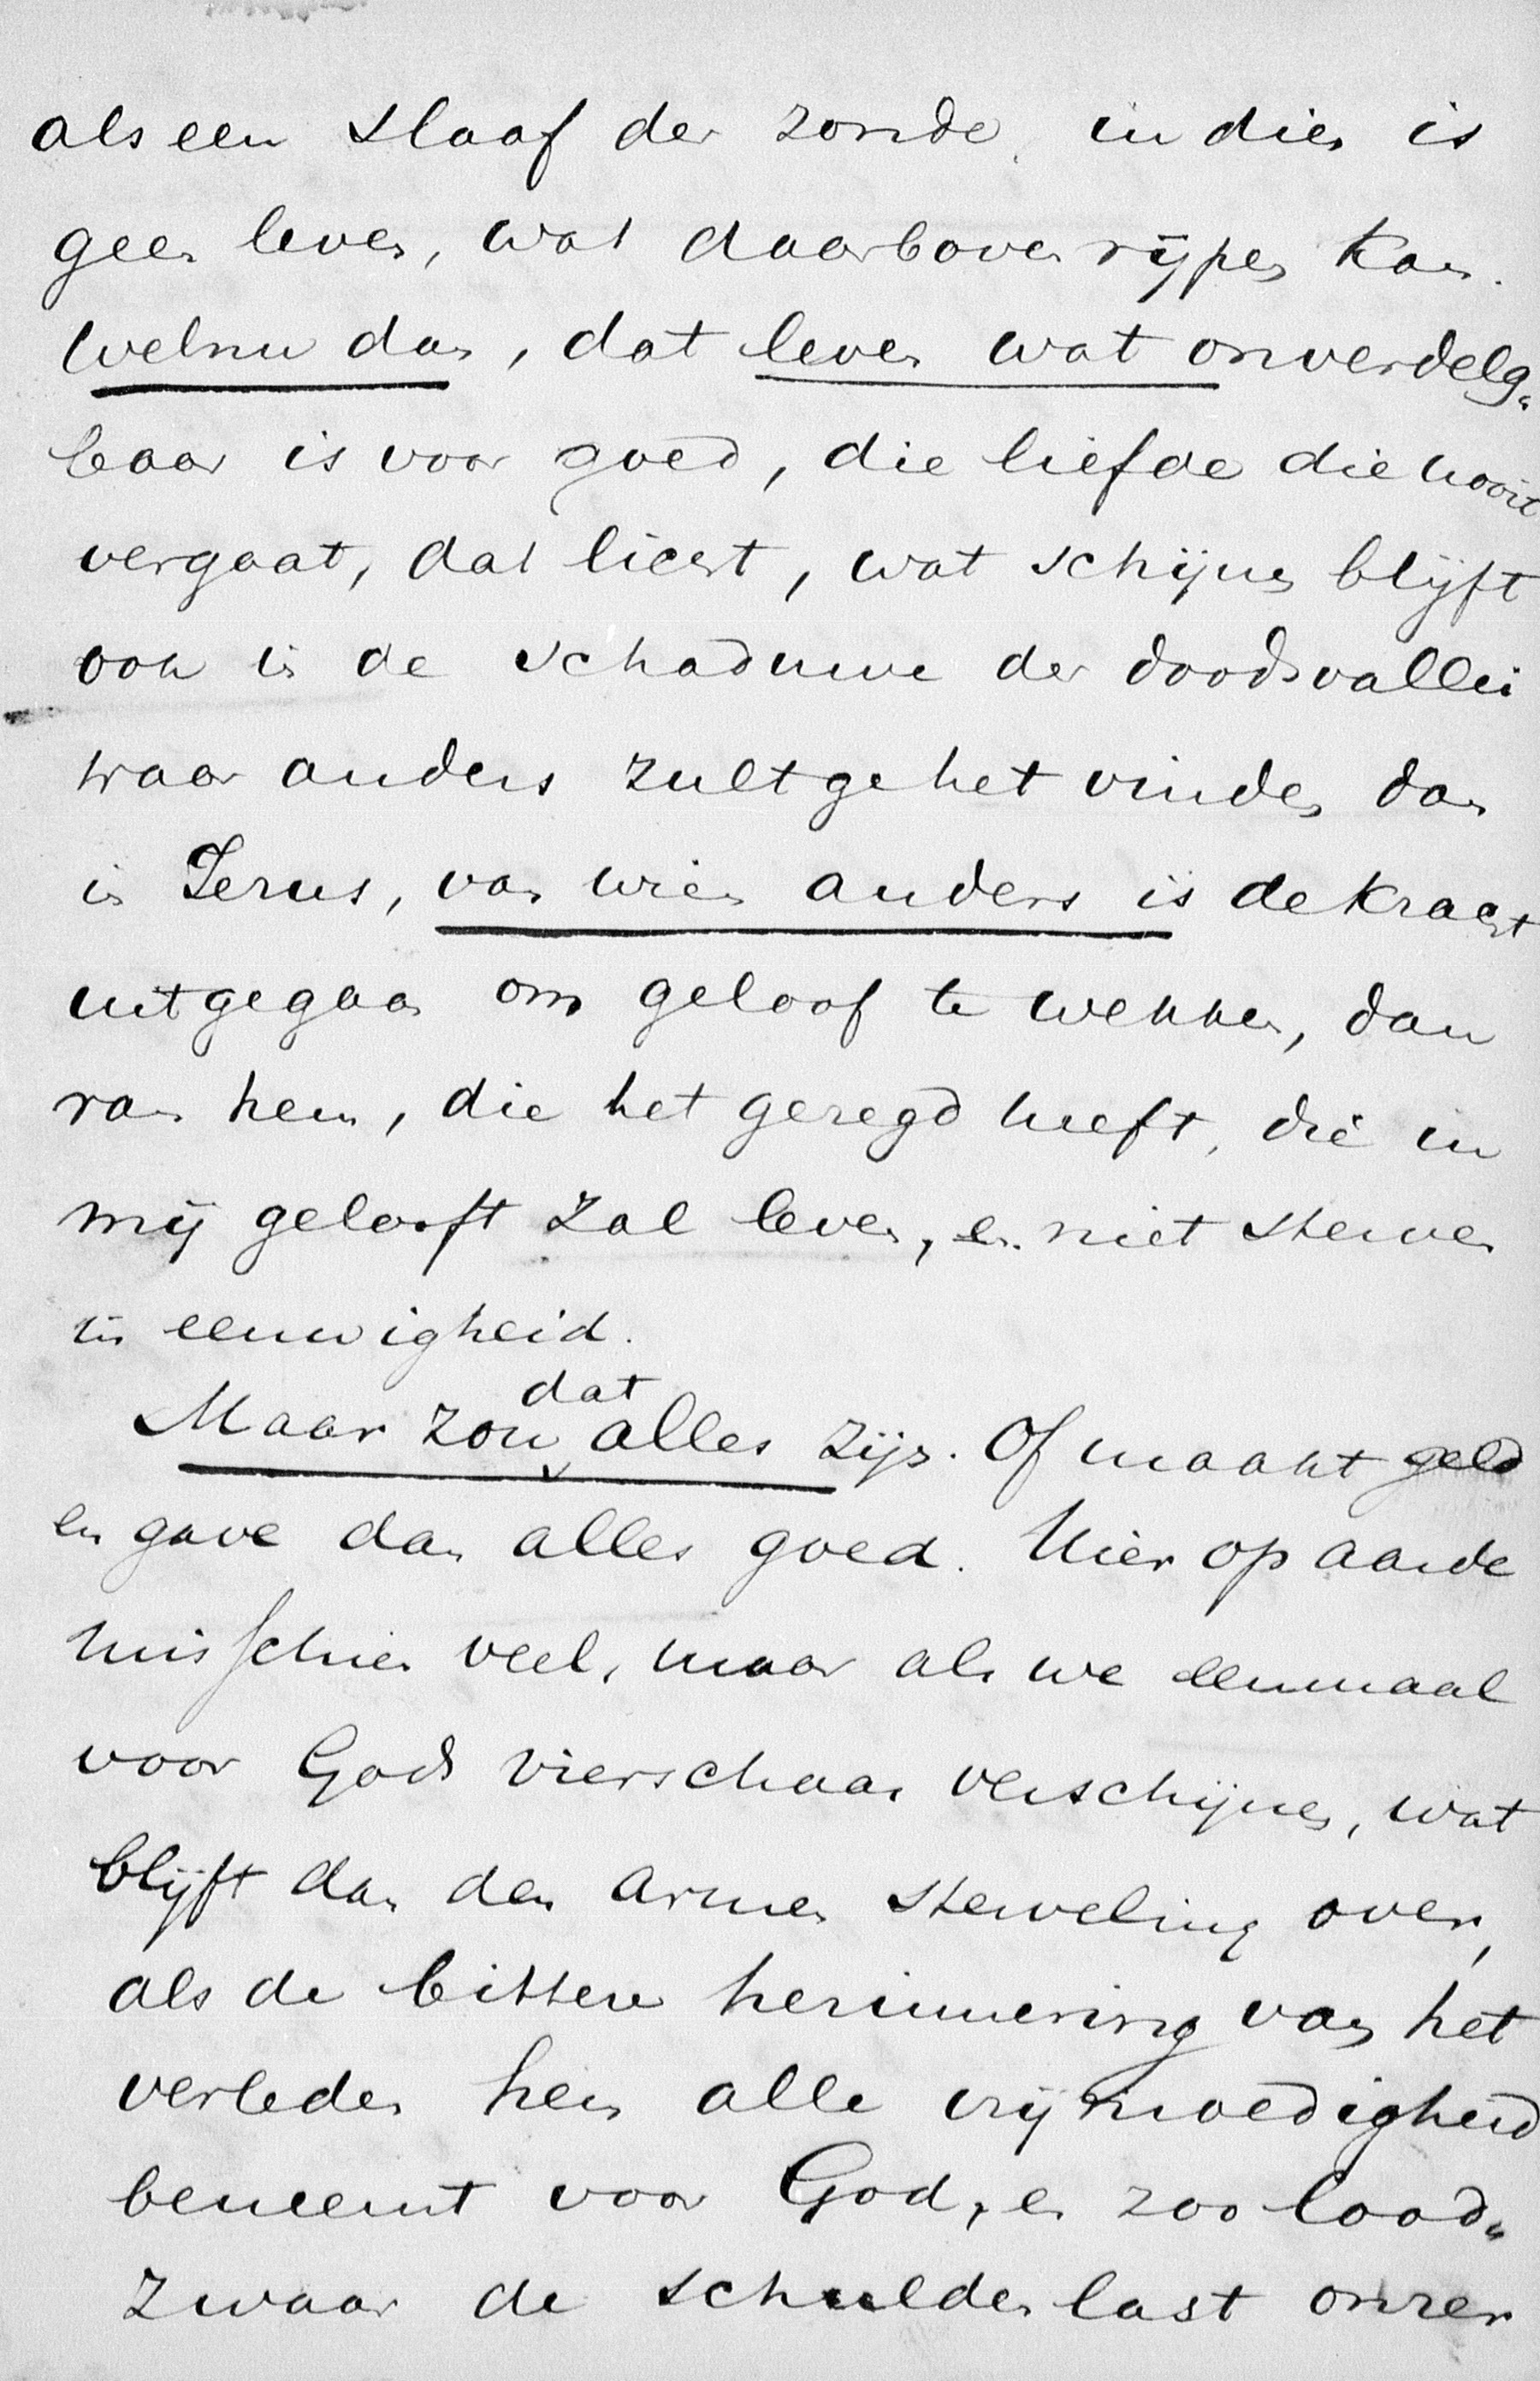 als een slaaf der zonde, in dien is
geen leven, wat daarboven rijpen kan.
Welnu dan, dat leven wat onverdelg„
baar is voor goed, die liefde die nooit
vergaat, dat licht, wat schijnen blijft
ook in de schaduwe der doodsvallei
waar anders zult ge het vinden dan
in Jezus, van wien anders is de kracht
uitgegaan om geloof te wekken, dan
van hem, die het gezegd heeft, die in
mij gelooft zal leven, en niet sterven
in eeuwigheid.
Maar zou dat alles zijn. Of maakt geld
en gave dan alles goed. Hier op aarde
misschien veel, maar als we eenmaal
voor Gods vierschaar verschijnen, wat
blijft dan den armen sterveling over,
als de bittere herinnering van het
verleden hem alle vrijmoedigheid
beneemt voor God, en zoo lood„
zwaar de schulden last onzer